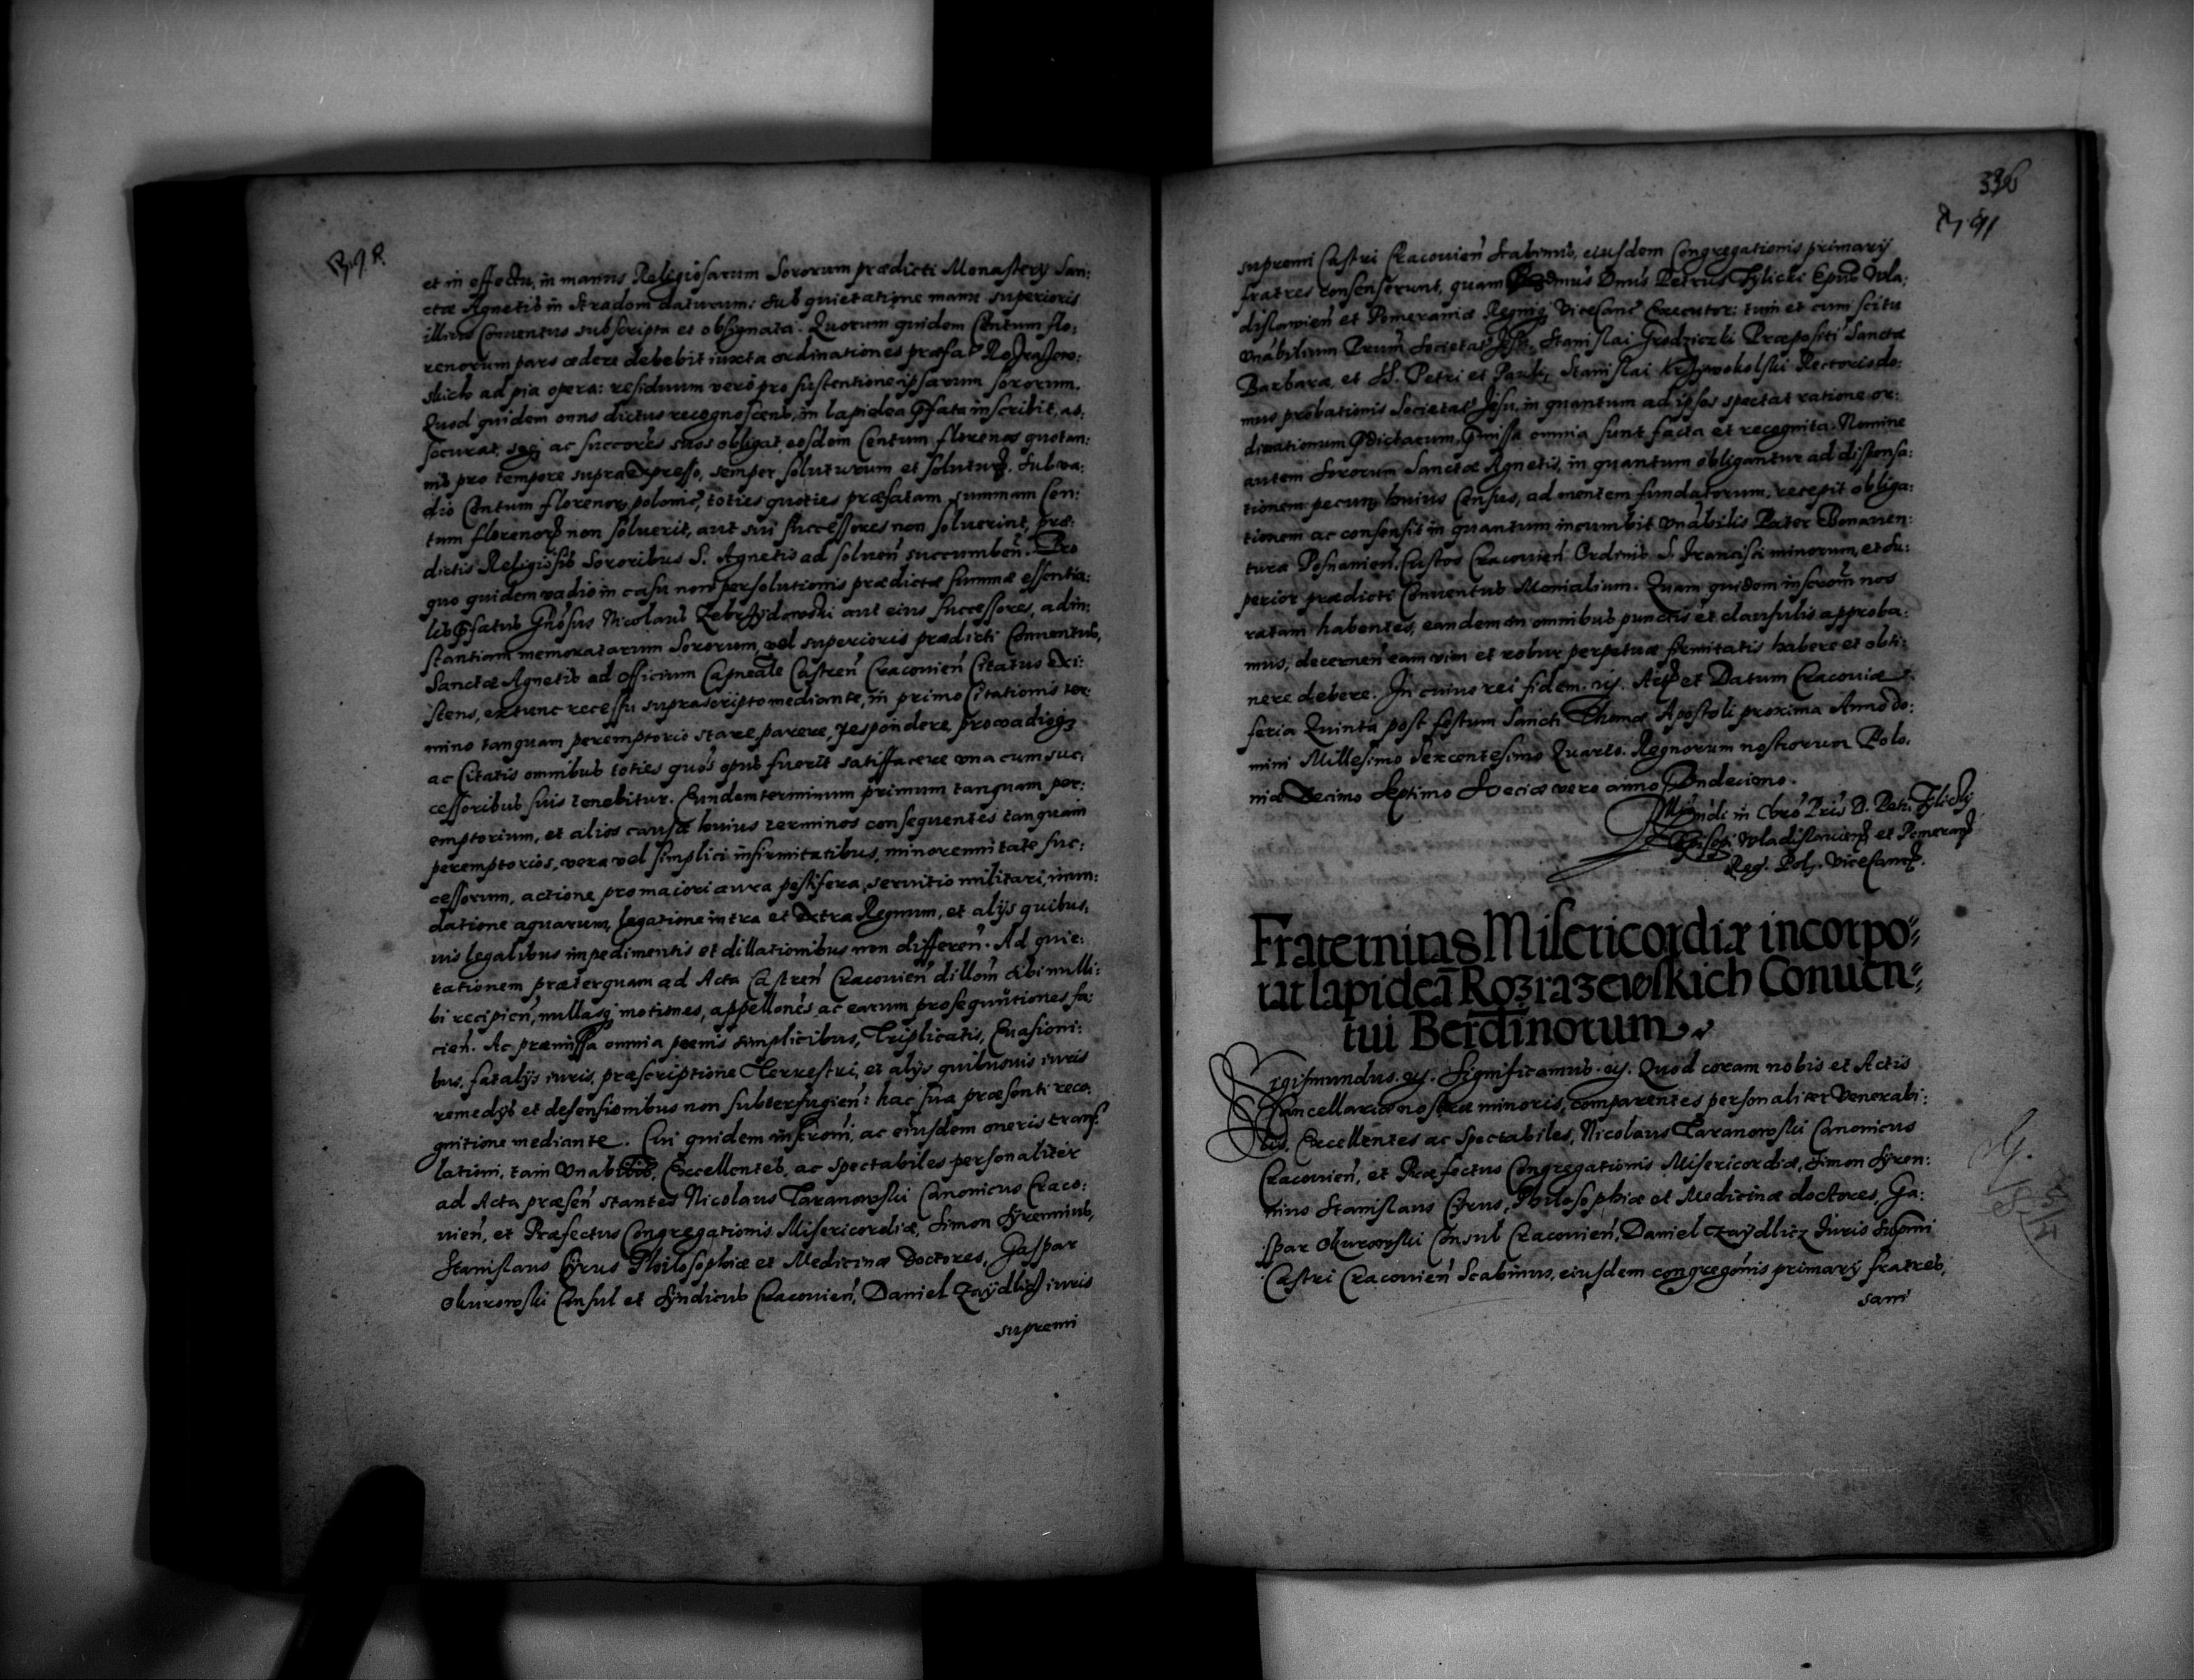 et in effectu, in manus Religiosarum Sororum prædicti Monastery San:
ctæ Agnetis in Stradom daturum: sub quietatione manu superioris
illius Conuentus subscripta et obsignata. Quorum quidem Centum flo:
renorum pars cedere debebit iuxta ordinationes præfat Rozrazew:
skich ad pia opera: residuum verò pro sustentione ipsarum sororum.
Quod quidem onus dictus recognoscens, in lapidea Pfata inscribit, as:
securat, seq3 ac succores suos obligat, eosdem Centum florenos quotan:
nis pro tempore supraexpresso, semper soluturum et solutur. Sub va:
dio Centum florenor polonic, toties quoties præfatam summam Cen:
tum florenor non soluerit, aut sui successores non soluerint, præ:
dictis Religiosis Sororibus S. Agnetis ad soluen succumben. Pro
quo quidem vadio in casu non persolutionis prædictæ summæ essentia:
lis Pfatus Gnosus Nicolaus Zebrzydowski aut eius successores, ad in:
stantiam memoratarum Sororum, vel superioris prædicti Conuentus,
Sanctæ Agnetis ad officium Capneale Castren Cracouien Citatus Exi:
stens, extunc recessu suprascripto mediante, in primo Citationis ter:
mino tanquam peremptorio stare, parere, respondere, pro vadioq3
ac Citatis omnibus toties quos opus fuerit satisfacere vna cum suc:
cessoribus suis tenebitur. Eundem terminum primum tanquam per:
emptorium, et alios causæ huius terminos consequentes tanquam
peremptorios, vera vel simplici infirmitatibus, minorennitate suc:
cessorum, actione pro maiori aura pestifera, seruitio militari, inun:
datione aquarum, legatione intra et extra Regnum, et alijs quibus:
uis legalibus impedimentis et dillationibus non differen. Ad quie:
tationem præterquam ad Acta Castren Cracouien dillom alibi nulli:
bi recipien, nullasq3 motiones, appellones, ac earum prosequutiones fa:
cien. Ac præmissa omnia pœnis simplicibus, Triplicatis, Euasioni:
bus, fatalijs iuris, præscriptione Terrestri, et alijs quibusuis iuris
remedijs et defensionibus non subterfugien: hac sua præsenti reco:
gnitione mediante. Cui quidem inscrom, ac eiusdem oneris trans:
lationi, tam Vnabiles, Excellentes, ac Spectabiles personaliter
ad Acta præsen stantes Nicolaus Taranowski Canonicus Craco:
uien, et Præfectus Congregationis Misericordiæ, Simon Syrennius,
Stanislaus Cyrus Philosophiæ et Medicinæ Doctores, Gaspar
Okurowski Consul et Syndicus Cracouien, Daniel Zaÿdlicz iuris
supremi
336
supremi Castri Cracouien Scabinus, eiusdem Congregationis primarij
fratres consenserunt, quam Rendmus Dnus Petrus Tylicki Epus Vla:
dislauien et Pomeraniæ Regniq3 ViceCanc Executor: tum et cum scitu
Vnabilium Prum Societat Jesu, Stanislai Grodziczki Præpositi Sanctæ
Barbaræ, et SS. Petri et Pauli, Stanislai Krzywokolski Rectoris do:
mus probationis Societat Jesu, in quantum ad ipsos spectat ratione or:
dinationum Pdictarum, Pmissa omnia sunt facta et recognita. Nomine
autem Sororum Sanctæ Agnetis, in quantum obligantur ad dispensa:
tionem pecun huius Census, ad mentem fundatorum, recepit obliga:
tionem ac consensit in quantum incumbit Vnabilis Pater Bonauen:
tura Posnanien, Custos Cracouien Ordinis S. Francisci minorum, et Su:
perior prædicti Conuentus Monialium. Quam quidem inscrom nos
ratam habentes, eandem in omnibus punctis et clausulis approba:
mus, decernen eam vim et robur perpetuæ firmitatis habere et obti:
nere debere. In cuius rei fidem. etc. Act et Datum Cracouiæ
feria Quinta post festum Sancti Thomæ Apostoli proxima Anno do:
mini Millesimo Sexcentesimo Quarto. Regnorum nostrorum Polo:
niæ Decimo Septimo Sueciæ vero anno Vndecimo.
in Chro Pris D. Petri Tylicky
Episcopi Wladislauien et Pomeran
Reg. Pol. ViceCanc.
Fraternitas Misericordiæ incorpo:
rat lapideā Rozrazewskich Conuen:
tui Berdinorum
Sigismundus. etc. Significamus. etc. Quod coram nobis et Actis
Cancellariæ nostræ minoris, comparentes personaliter Venerabi:
lis, Excellentes ac Spectabiles, Nicolaus Taranowski Canonicus
Cracouien, et Præfectus Congregationis Misericordiæ, Simon Syren:
nius Stanislaus Cyrus, Philosophiæ et Medicinæ doctores, Ga:
spar Okurowski Consul Cracouien, Daniel Zaÿdlicz Iuris Supmi
Castri Cracouien Scabinus, eiusdem congregonis primarij fratres,
sani